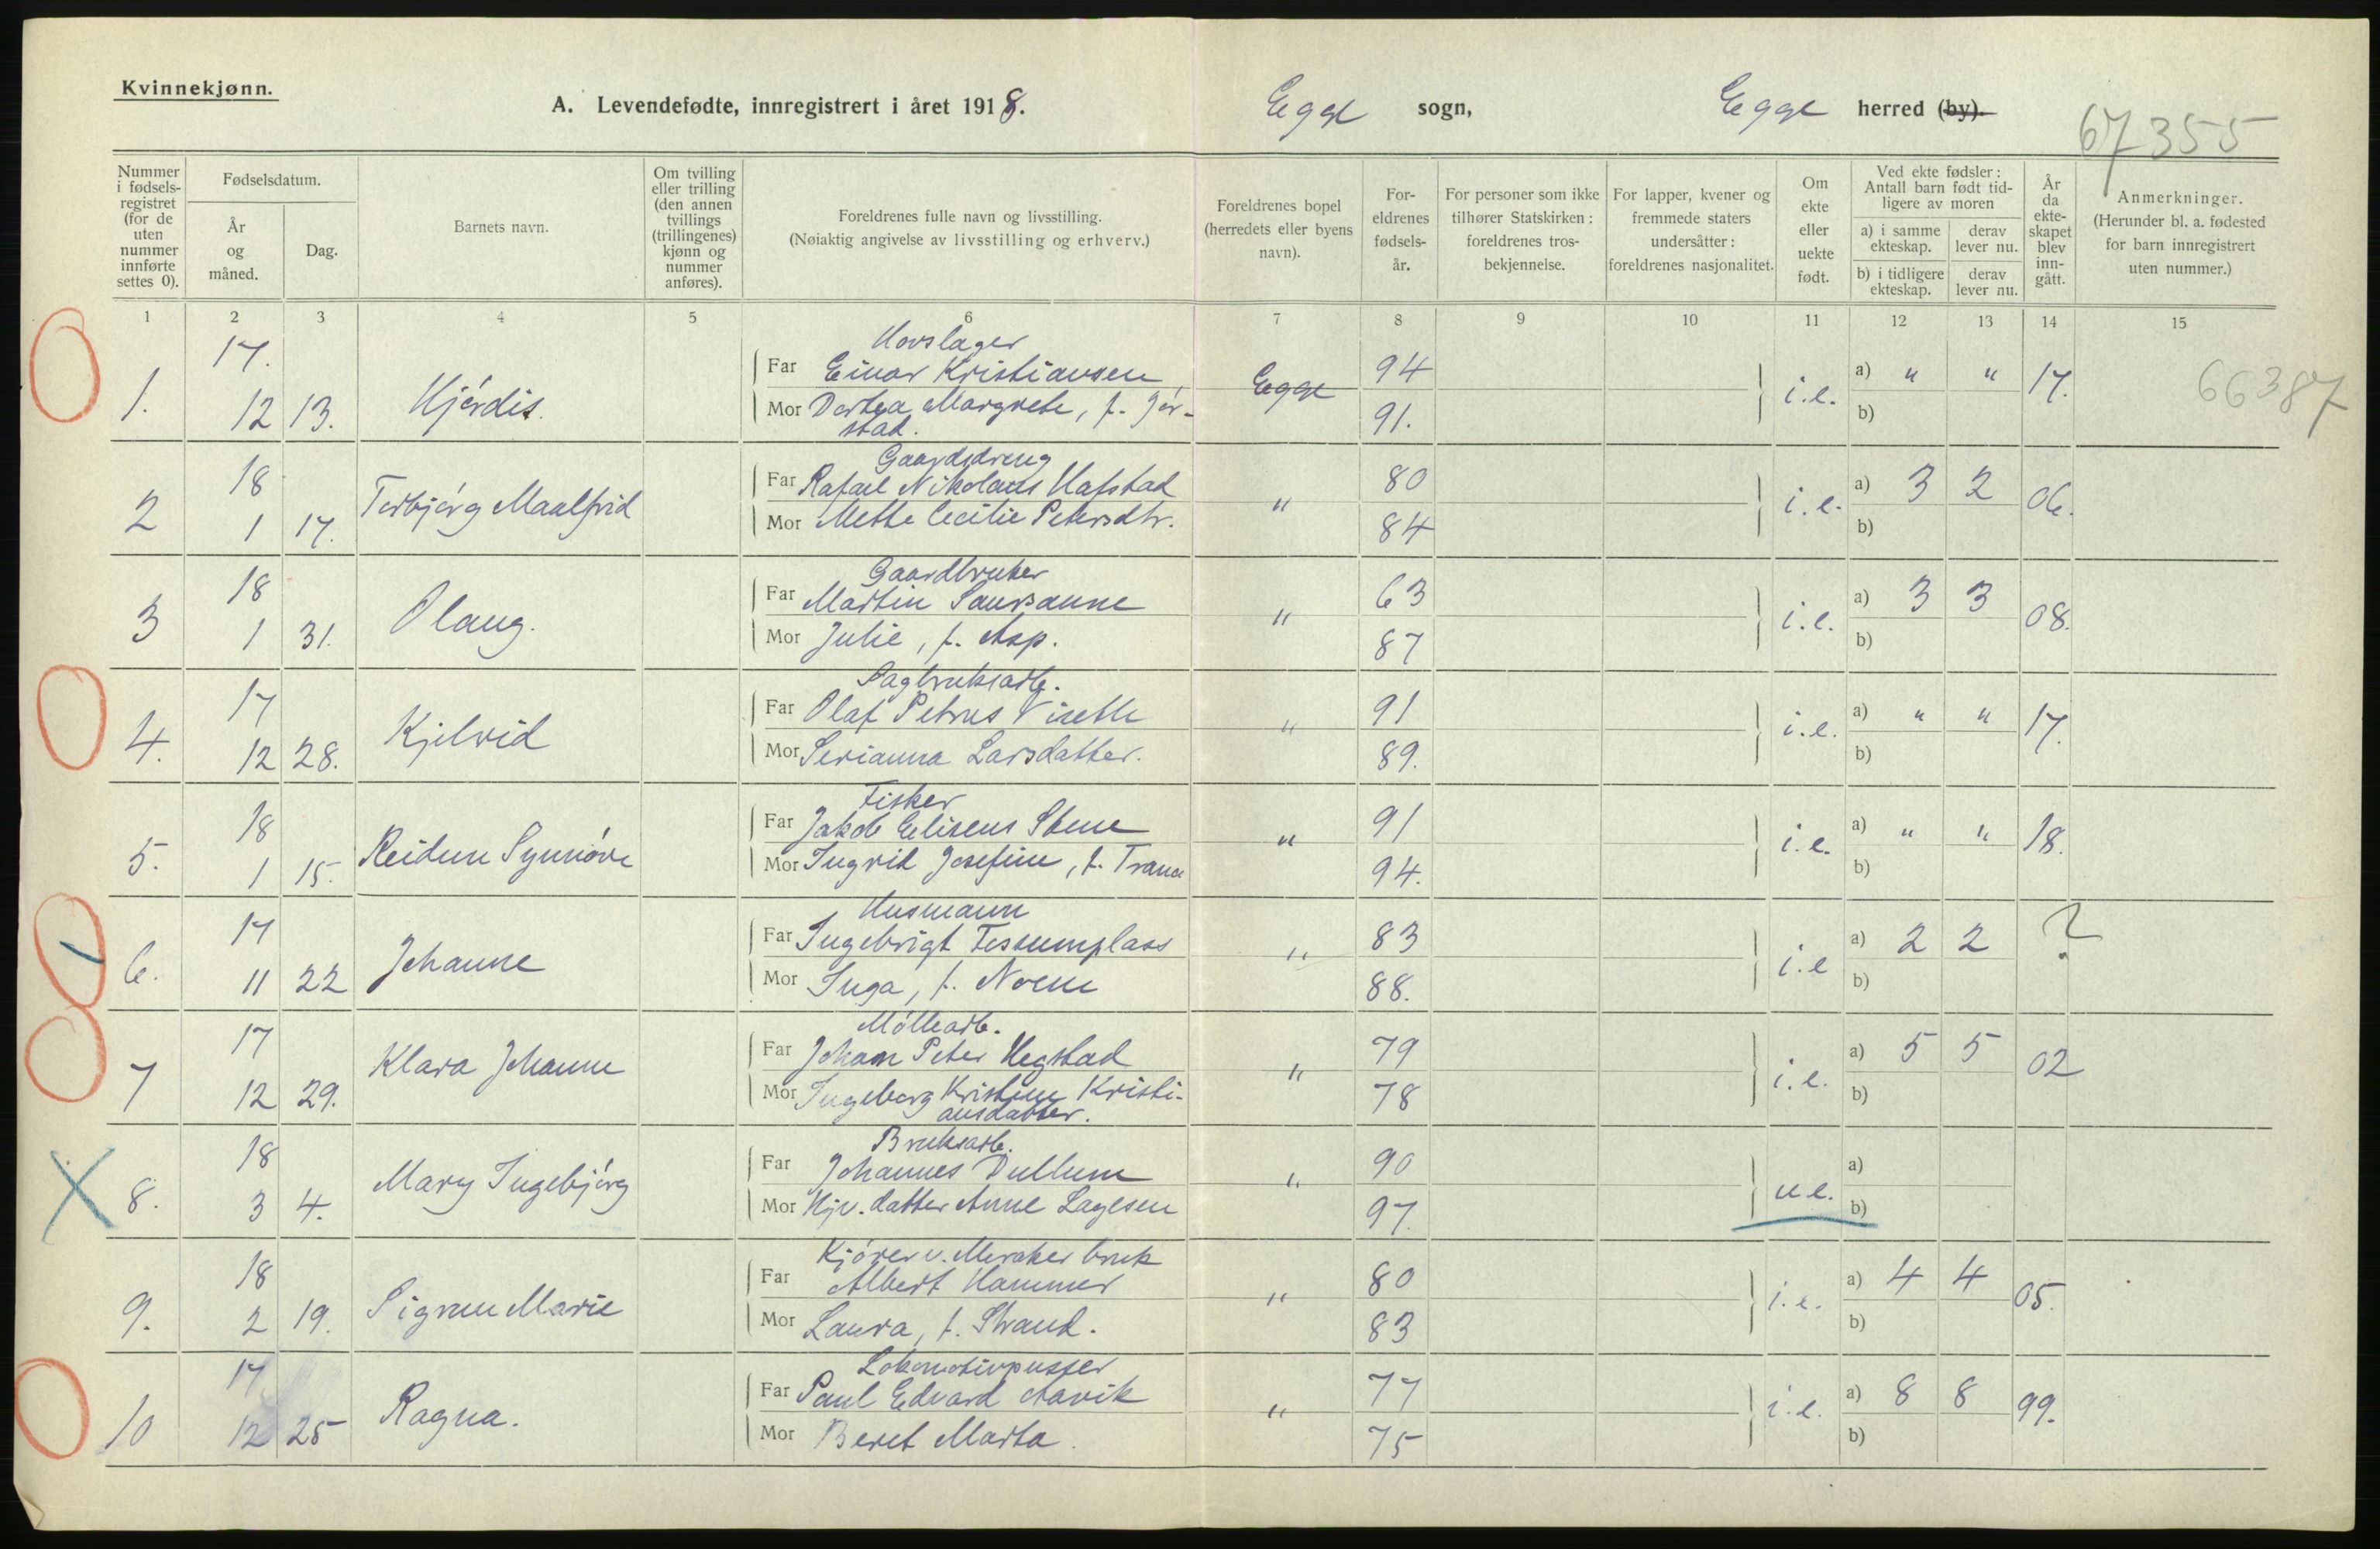 Kvinnekjønn.
A. Levendefødte, innregistrert i året 1918. Egge sogn, Egge herred (by).
67355
Nummer i fødselsregistret (for de uten nummer innførte settes 0).
Fødselsdatum.
År og måned.
Dag.
Barnets navn.
Om tvilling eller trilling (den annen tvillings (trillingenes) kjønn og nummer anføres).
Foreldrenes fulle navn og livsstilling.
(Nøiaktig angivelse av livsstilling og erhverv.)
Foreldrenes bopel (herredets eller byens navn).
Foreldrenes fødselsår.
For personer som ikke tilhører Statskirken: foreldrenes trosbekjennelse.
For lapper, kvener og fremmede staters undersåtter: foreldrenes nasjonalitet.
Om ekte eller uekte født.
Ved ekte fødsler: Antall barn født tidligere av moren
a) i samme ekteskap. derav lever nu.
b) i tidligere ekteskap. derav lever nu.
År da ekteskapet blev inngått.
Anmerkninger.
(Herunder bl. a. fødested for barn innregistrert uten nummer.)
1 2 3 4 5 6 7 8 9 10 11 12 13 14 15
Hovslager
17. Far Einar Kristiansen Egge 94 a) " " 17. 66387
1. 12 13. Hjördis. Mor Dortea Margrete, f. Jör- 91. i.e. b)
stad.
Gaardsdreng
18 Far Rafael Nikolaus Hafstad " 80 a) 3 2 06.
2 1 17. Torbjörg Maalfrid Mor Mette Cecilie Petersdtr. 84 i.e. b)
Gaardbruker
18 Far Martin Saursaune " 63 a) 3 3 08.
3 1 31. Olaug. Mor Julie, f. Asp. 87 i.e. b)
Sagbruksarb.
17 Far Olaf Petrus " 91 a) " " 17.
4. 12 28. Kjelrid Mor Serianna Larsdatter. 89. i.e. b)
Fisker
18 Far Jakob Eliseus Stene " 91 a) " " 18.
5. 1 15. Reidun Synnöve Mor Ingrid Josefine, f. Trana 94. i.e. b)
Husmann
17 Far Ingebrigt Fessumplass " 83 a) 2 2 ?
6. 11 22 Johanne Mor Inga, f. Noem 88. i.e b)
Möllearb.
17 Far Johan Peter Hegstad " 79 a) 5 5 02
7 12 29. Klara Johanne Mor Ingeborg Kristine Kristi- 78 i.e. b)
ansdatter.
Bruksarb.
18 Far Johannes Dullum " 90 a)
8. 3 4. Mary Ingebjörg Mor Hjv. datter Anne Lagesen 97. u.e. b)
Kjörer v. Meraker bruk
18 Far Albert Hammer " 80 a) 4 4 05.
9. 2 19. Sigrun Marie Mor Laura, f. Strand. 83 i.e. b)
Lokomotivpusser
17 Far Paul Edvard Aavik " 77 a) 8 8 99.
10 12 25 Ragna. Mor Beret Marta. 75 i.e. b)